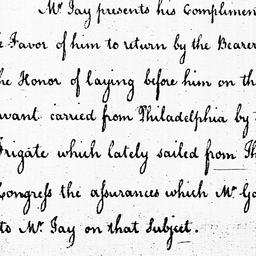 Mr Jay presents his Complimen
Favor of him to return by the Bearer
he Honor of laying before him on th
want carried from Philadelphia by
Frigate which lately sailed from Th
Congress the assurances which Mr Ga
to Mr Jay on that Subject.